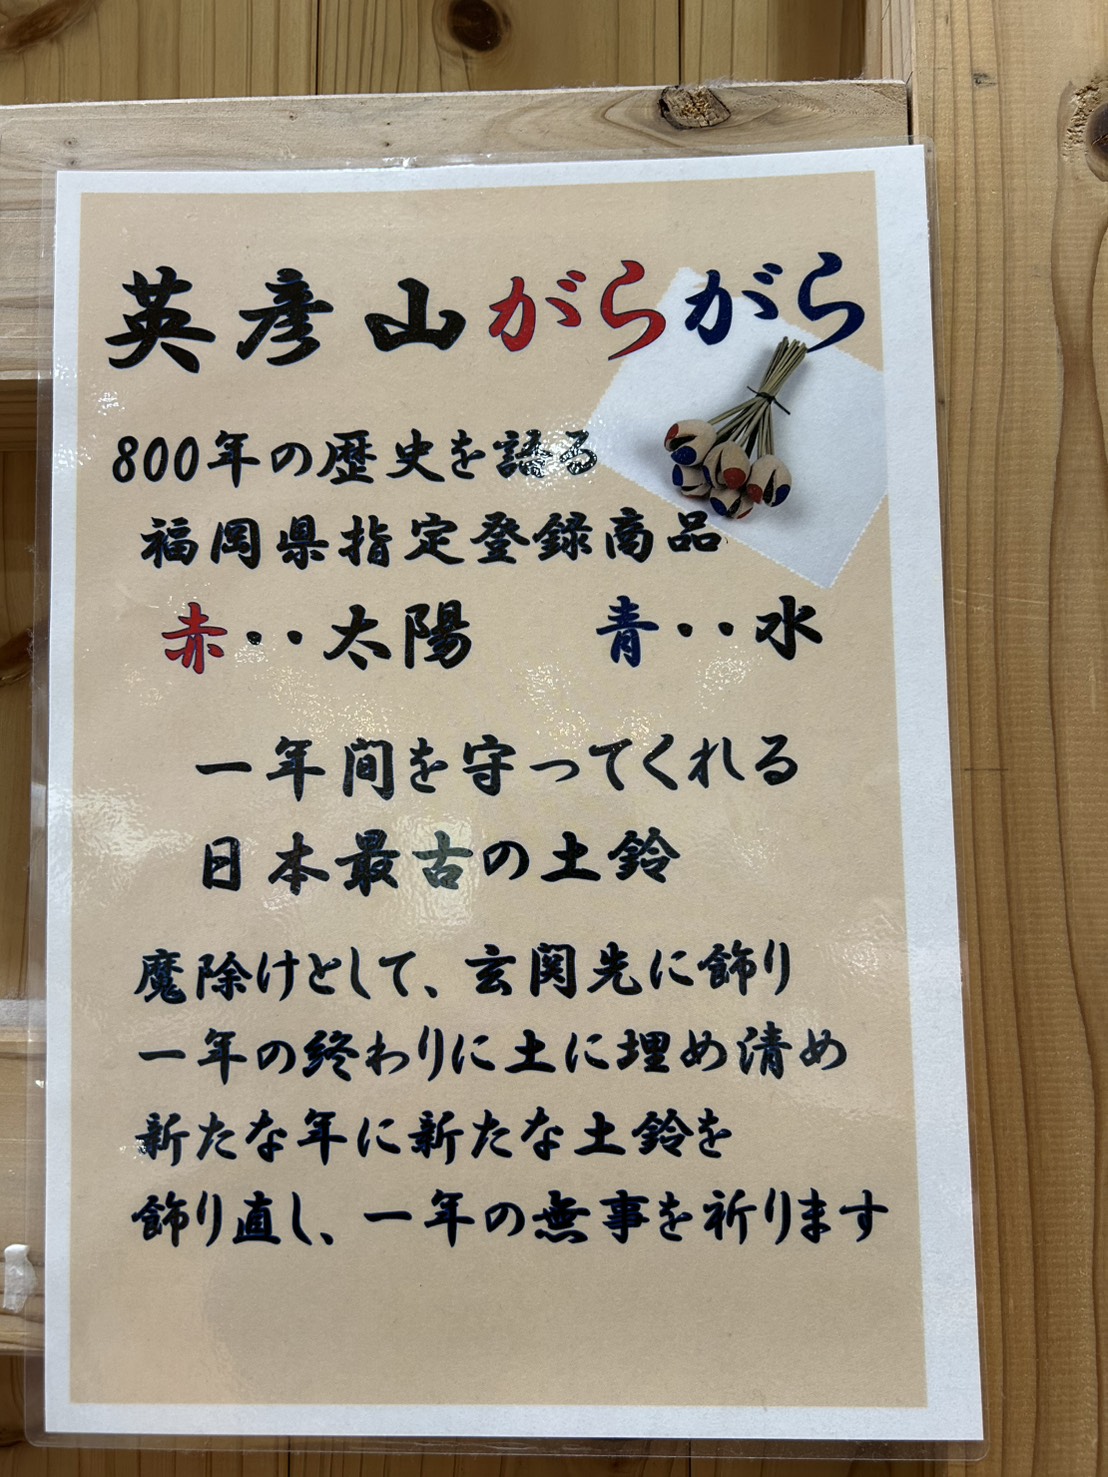 英彦山がらがら
800年の歴史を語る
福岡県指定登録商品
赤・・太陽　青・・水
一年間を守ってくれる
日本最古の土鈴
魔除けとして、玄関先に飾り
一年の終わりに土に埋め清め
新たな年に新たな土鈴を
飾り直し、一年の無事を祈ります